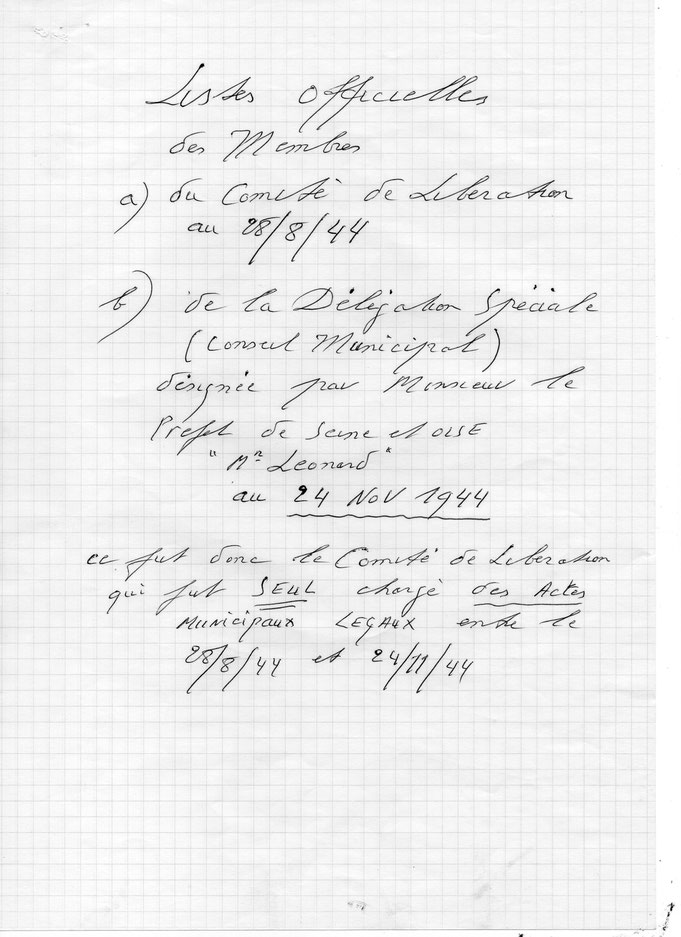 Listes officielles
des Membres
a) du Comité de Liberation
au 28/8/44
b) de la Délégation Spéciale
(Conseil Municipal)
désignée par Monsieur le
Prefet de Seine et OISE
"Mr Leonard"
au 24 NOV 1944
ce fut donc le Comité de Liberation
qui fut SEUL chargé des Actes
Municipaux LEGAUX entre le
28/8/44 et 24/11/44